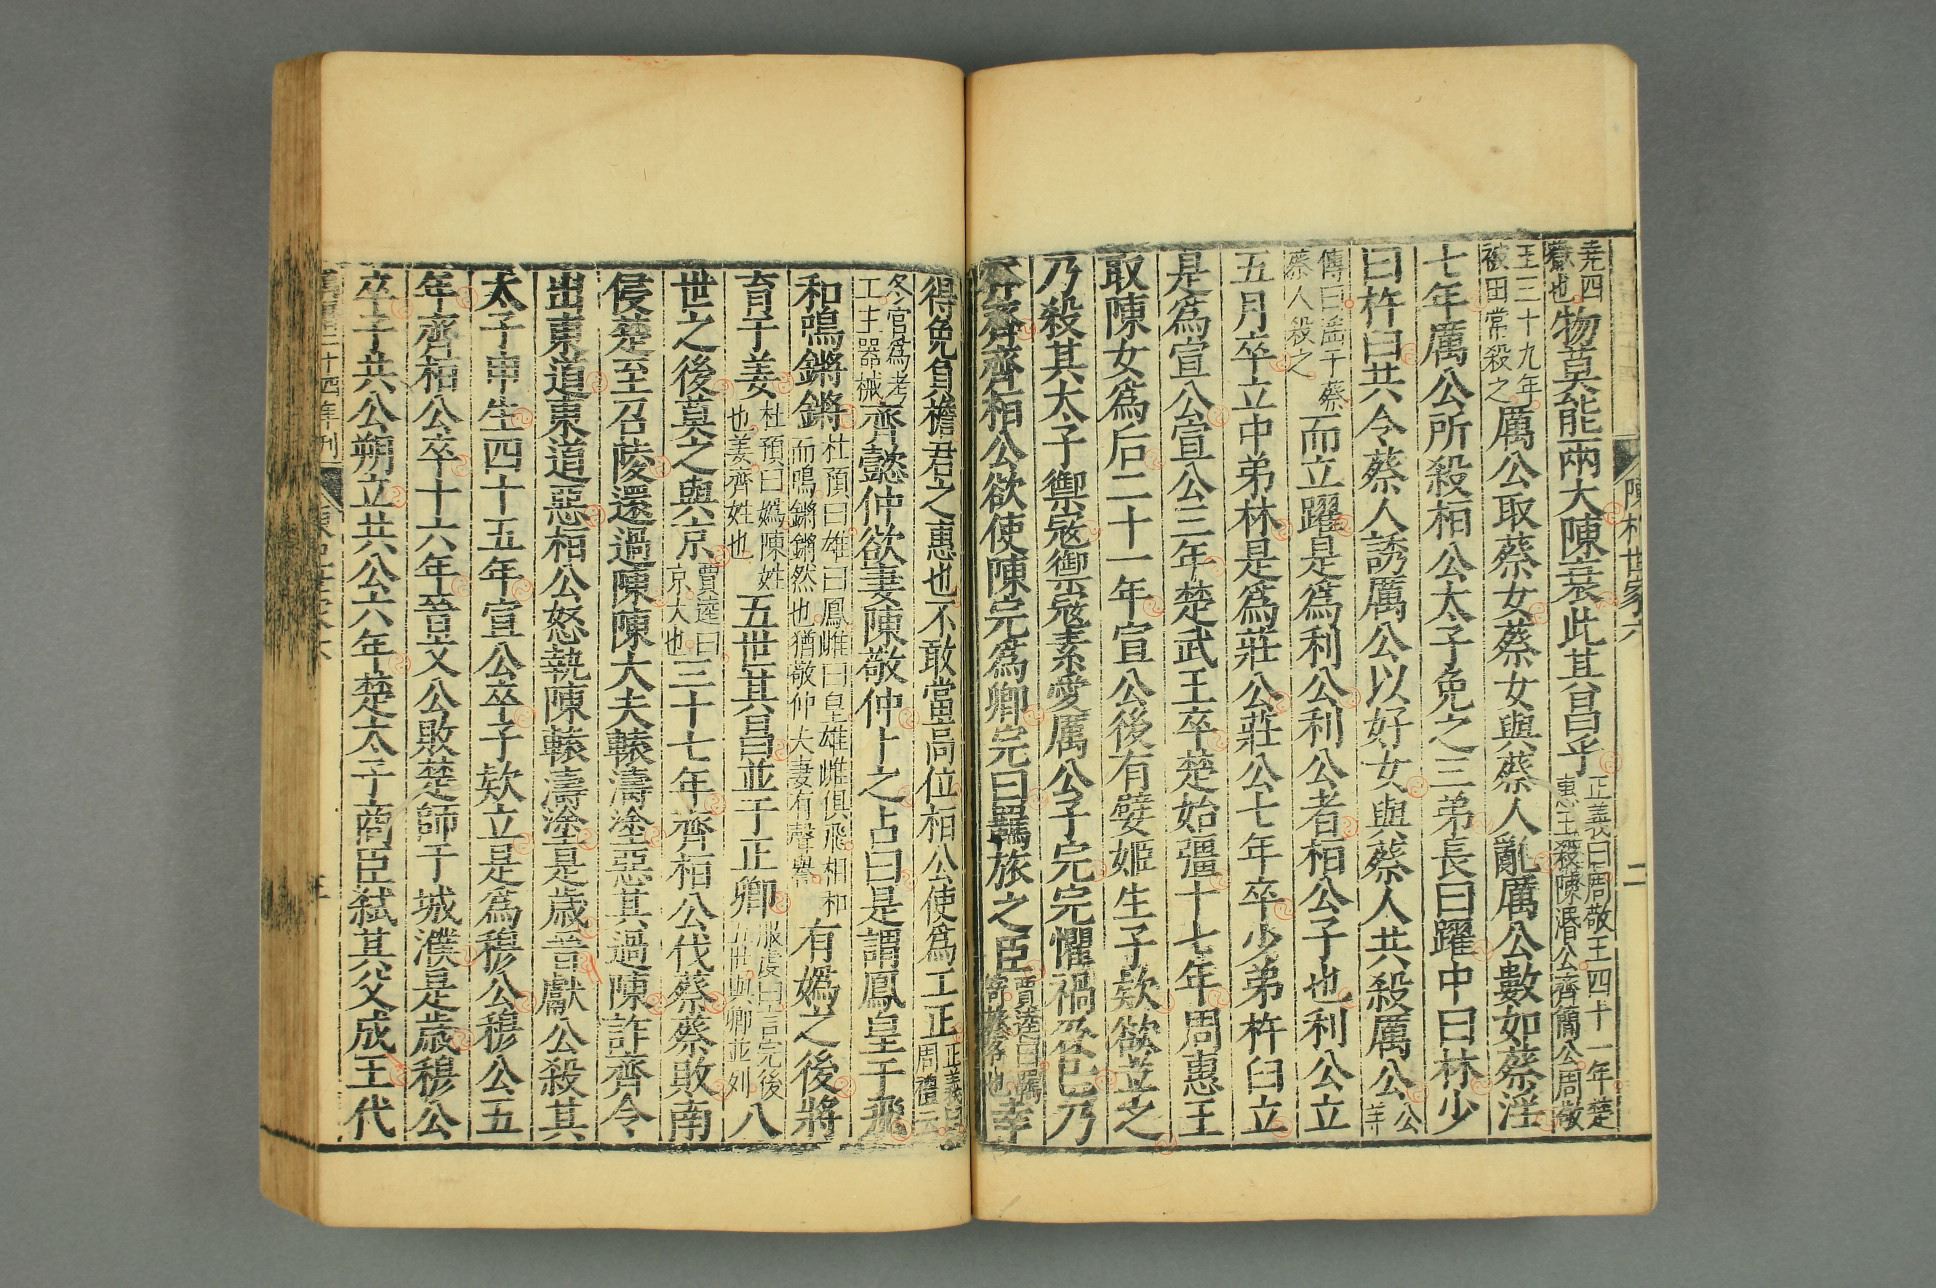 陳杞世家六 二
尭四嶽也物莫能兩大陳衰此其昌乎正義曰周敬王四十一年楚惠王殺陳湣公齊簡公周敬
王三十九年被田常殺之厲公取蔡女蔡女與蔡人亂厲公數如蔡淫
七年厲公所殺桓公太子免之三弟長曰躍中曰林少
曰杵臼共令蔡人誘厲公以好女與蔡人共殺厲公公羊
傳曰淫于蔡蔡人殺之而立躍是爲利公利公者桓公子也利公立
五月卒立中弟林是爲莊公莊公七年卒少弟杵臼立
是爲宣公宣公三年楚武王卒楚始彊十七年周惠王
取陳女爲后二十一年宣公後有嬖姬生子款欲立之
乃殺其太子禦寇禦寇素愛厲公子完完懼禍及已乃
奔齊齊桓公欲使陳完爲卿完曰羈旅之臣賈逵曰羈寄旅客也幸
得免負檐君之惠也不敢當高位桓公使爲工正正義曰周禮云
冬官爲考工主器械齊懿仲欲妻陳敬仲卜之占曰是謂鳳皇于飛
和鳴鏘鏘杜預曰雄曰鳳雌曰皇雄雌俱飛相和而鳴鏘鏘然也猶敬仲夫妻有聲譽有嬀之後將
育于姜杜預曰嬀陳姓也姜齊姓也五世其昌並于正卿服虔曰言完後五世與卿並列八
世之後莫之與京賈逵曰京大也三十七年齊桓公伐蔡蔡敗南
侵楚至召陵還過陳陳大夫轅濤塗惡其過陳詐齊令
出東道東道惡桓公怒執陳轅濤塗是歲晉獻公殺其
太子申生四十五年宣公卒子款立是爲穆公穆公五
年齊桓公卒十六年晉文公敗楚師于城濮是歲穆公
卒子共公朔立共公六年楚太子商臣弑其父成王代
二十四年刊